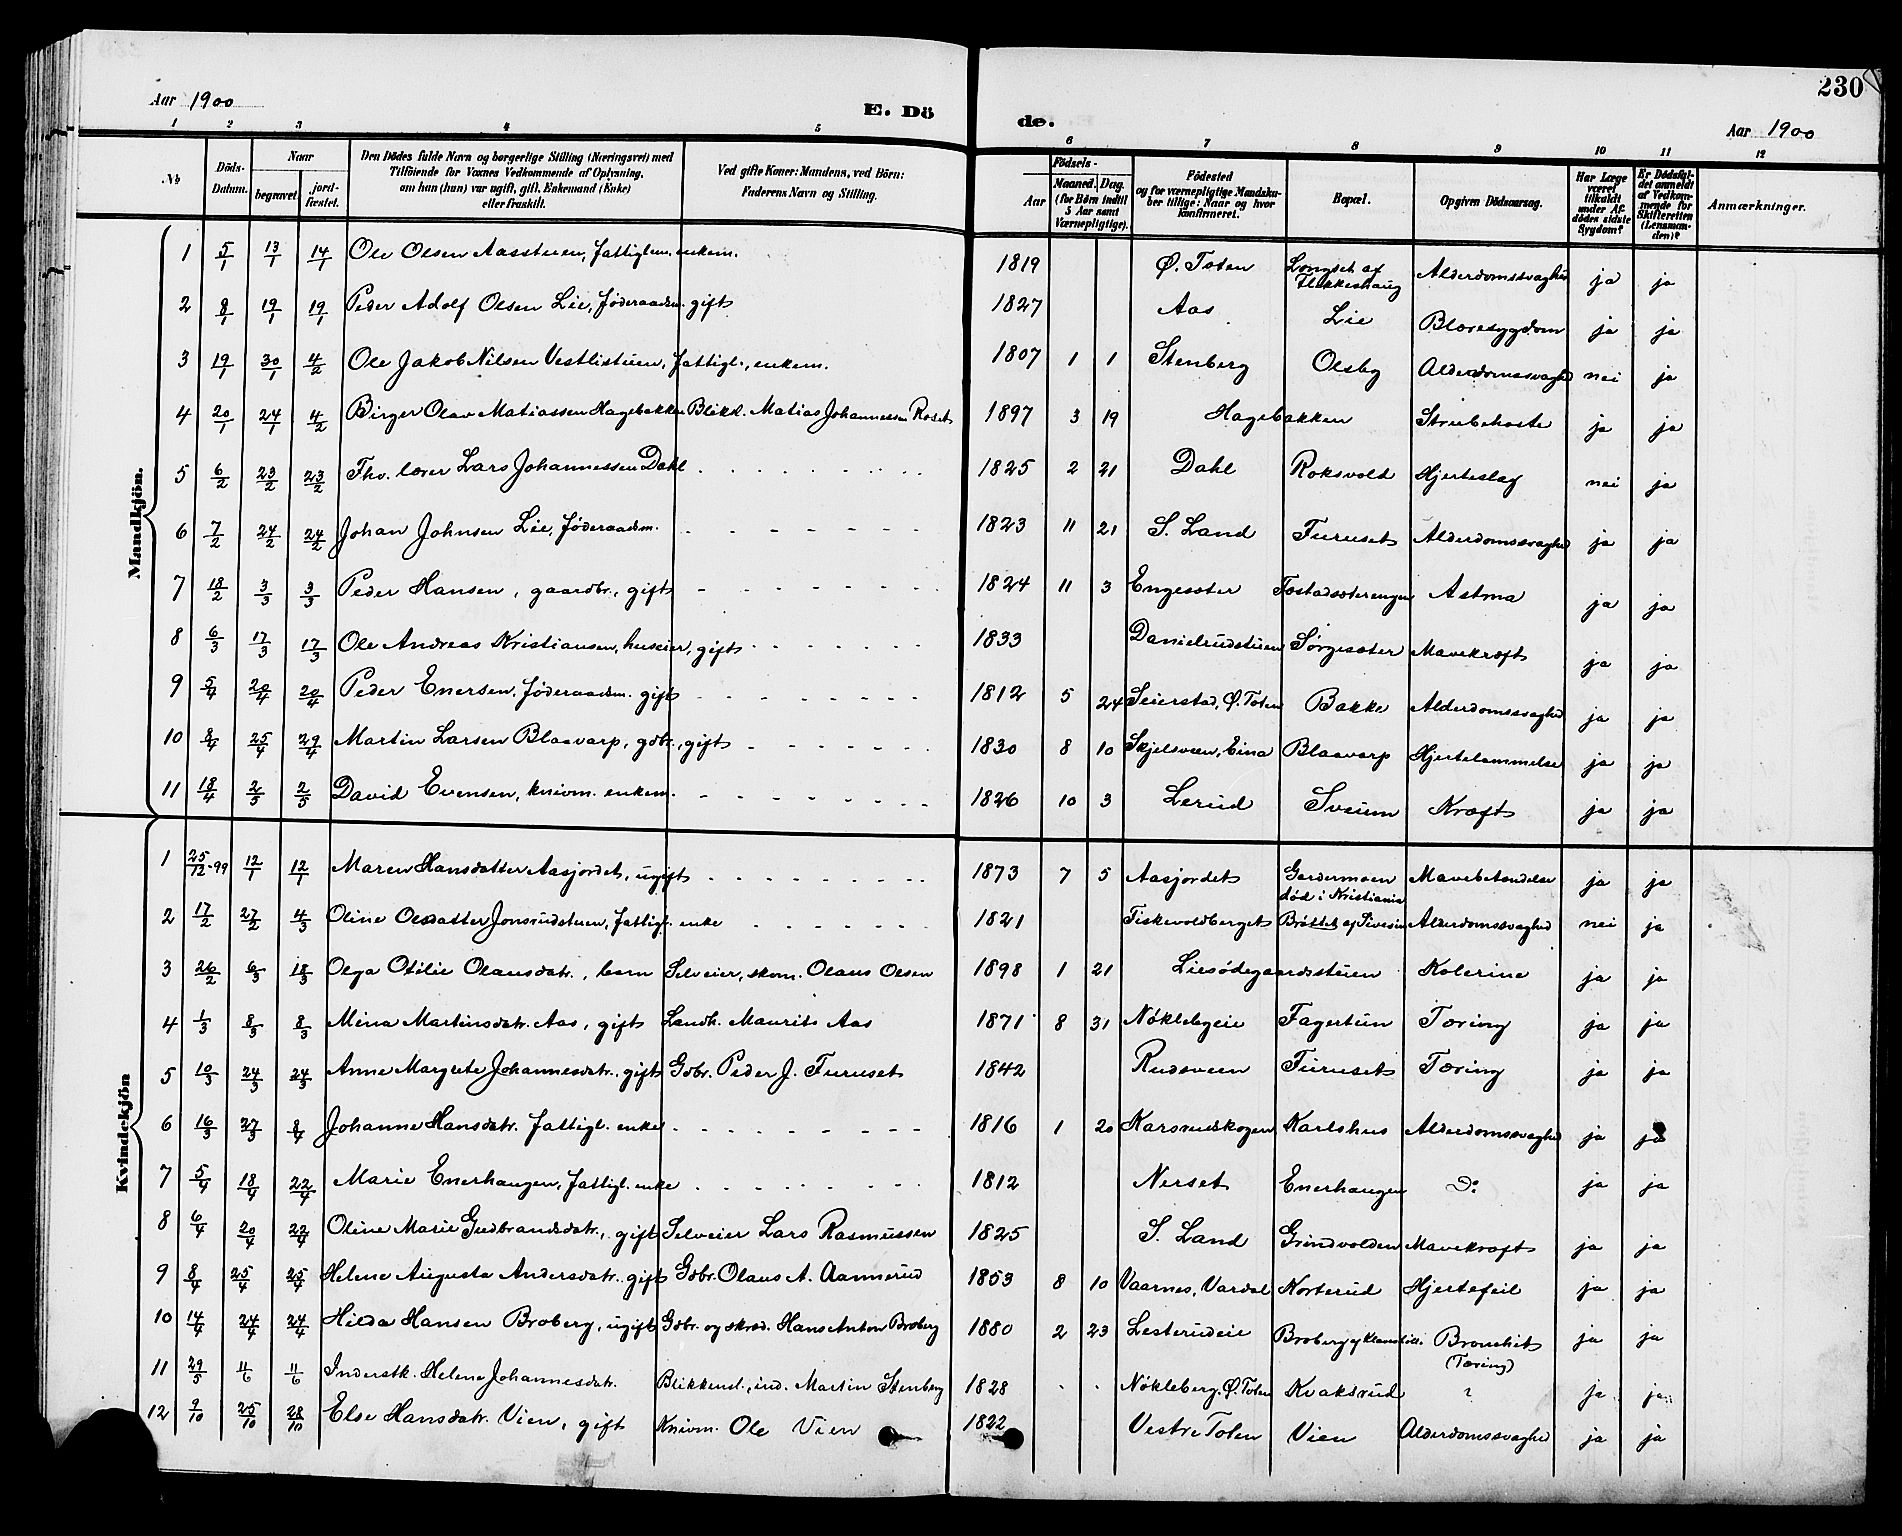 230
Aar 1900 E. Dö de. Aar 1900
1 2 3 4 5 6 7 8 9 10 11 12
No Döds-Datum. Naar begravet. jordfæstet. Den Dödes fulde Navn og borgerlige Stilling (Næringsvei) med Tilföiende for Voxnes Vedkommende af Oplysning, om han (hun) var ugift, gift, Enkemand (Enke) eller fraskilt. Ved gifte Koner: Mandens, ved Börn: Faderens Navn og Stilling. Födsels- Aar Maaned. Dag. (for Börn indtil 5 Aar samt Værnepligtige). Födested og for værnepligtige Mandskaber tillige: Naar og hvor konfirmeret. Bopæl. Opgiven Dödsaarsag. Har Læge været tilkaldt under Afdödes sidste Sygdom? Er Dödsfaldet anmeldt af Vedkommende for Skifteretten (Lensmanden)? Anmærkninger.
Mandkjön.
1 5/1 13/1 14/1 Ole Olsen Aasstuen, fattiglem, enkem. 1819 Ø. Toten Longset af Flekkeshaug Alderdomssvaghed ja ja
2 8/1 19/1 19/1 Peder Adolf Olsen Lie, føderaadsm. gift 1827 Aas Lie Blæresygdom ja ja
3 19/1 30/1 4/2 Ole Jakob Nilsen Vestlistuen, fattigl., enkem. 1807 1 1 Stenberg Olsby Alderdomssvaghed nei ja
4 20/1 24/1 4/2 Birger Olav Matiassen Hagebakken Blikd. Matias Johannessen Roset 1897 3 19 Hagebakken Strubehoste ja ja
5 6/2 23/2 23/2 Fhv. lærer Lars Johannessen Dahl 1825 2 21 Dahl Roksvold Hjerteslag nei ja
6 7/2 24/2 24/2 Johan Johnsen Lie, føderaadsm. 1823 11 21 S. Land Furuset Alderdomssvaghed ja ja
7 18/2 3/3 3/3 Peder Hansen, gaardbr., gift 1824 11 3 Engesæter Tostadsæterengen Astma ja ja
8 6/3 17/3 17/3 Ole Andreas Kristiansen, huseier, gift 1833 Danielrudstuen Sørgesæter Mavekræft ja ja
9 5/4 20/4 20/4 Peder Enersen, føderaadsm. gift 1812 5 24 Seierstad, Ø. Toten Bakke Alderdomssvaghed ja ja
10 8/4 25/4 29/4 Martin Larsen Blaavarp, gdbr., gift 1830 8 10 Skjelsveen, Eina Blaavarp Hjertelammelse ja ja
11 18/4 2/5 2/5 David Evensen, knivm. enkem. 1826 10 3 Lerud Sveum Kræft ja ja
Kvindekjön
1 25/12-99 12/1 12/1 Maren Hansdatter Aasjordet, ugift 1873 7 5 Aasjordet Gardermoen død i Kristiania Mavebetændelse ja ja
2 17/2 27/2 4/3 Oline Olsdatter Jonsrudstuen, fattigl. enke 1821 Fiskevoldberget Bråttet af Alderdomssvaghed nei ja
3 26/2 6/3 18/3 Olga Otilie Olausdatr., barn Selveier, skom. Olaus Olsen 1898 1 21 Liesødegaardsstuen Kolerine ja ja
4 1/3 8/3 8/3 Mina Martinsdatr. Aas, gift Landh. Maurits Aas 1871 8 31 Nøklebyeie Fagertun Tæring ja ja
5 10/3 24/3 24/3 Anne Margrete Johannesdatr., gift Gdbr. Peder J. Furuset 1842 Rudsveen Furuset Tæring ja ja
6 16/3 27/3 8/4 Johanne Hansdatr. fattigl. enke 1816 1 20 Karsrudskogen Karlshus Alderdomssvaghed ja ja
7 5/4 18/4 22/4 Marie Enerhaugen, fattigl. enke 1812 Nerset Enerhaugen Do ja ja
8 6/4 20/4 22/4 Oline Marie Gudbrandsdatr., gift Selveier Lars Rasmussen 1825 S. Land Grindvolden Mavekræft ja ja
9 8/4 25/4 25/4 Helene Augusta Andersdatr., gift Gdbr. Olaus A. Aannerud 1853 8 10 Vaarnes, Vardal Korterud Hjertefeil ja ja
10 14/4 24/4 24/4 Hilda Hansen Broberg, ugift Gdbr. og skræd. Hans Anton Broberg 1880 2 23 Lesterudeie Broberg Bronchit (Tæring) ja ja
11 29/5 11/6 11/6 Inderstk. Helene Johannesdatr. Blikkensl., ind. Martin Stenberg 1828 Nøkleberg, Ø. Toten Kvaksrud ? ja ja
12 9/10 25/10 28/10 Else Hansdatr. Vien, gift Knivm. Ole Vien 1822 Vestre Toten Vien Alderdomssvaghed ja ja